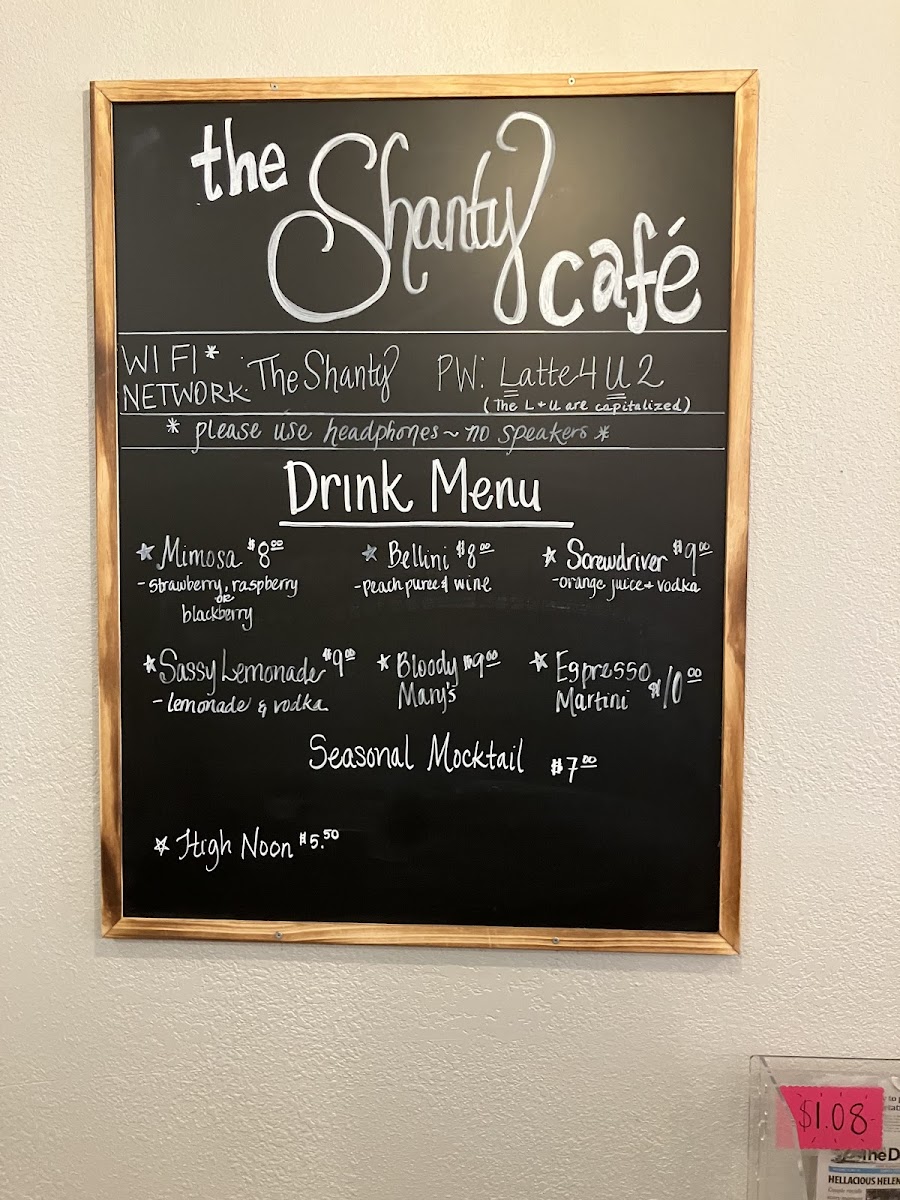 the Shanty café
WIFI*
NETWORK: The Shanty PW: Latte4U2
(The L + U are capitalized)
* please use headphones ~ no speakers *
Drink Menu
☆ Mimosa $8.00
- strawberry, raspberry
or
blackberry
☆ Bellini $8.00
- peach puree & wine
☆ Screwdriver $9.00
- orange juice + vodka
☆ Sassy Lemonade $9.00
- lemonade & vodka
☆ Bloody $9.00
Mary's
☆ Espresso
Martini $10.00
Seasonal Mocktail $7.00
☆ High Noon $5.50
$1.08
The D
HELLACIOUS HELEN